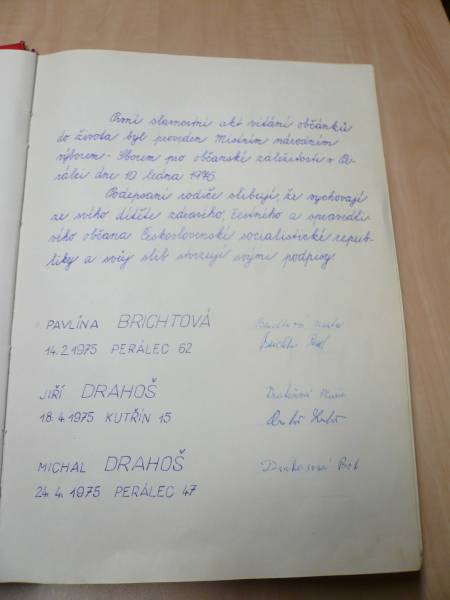 První slavnostní akt vítání občánků
do života byl proveden Místním národním
výborem - Sborem pro občanské záležitosti v Pe-
rálci dne 10 ledna 1976.
Podepsaní rodiče slibují, že vychovají
ze svého dítěte zdravého, čestného a spravedli-
vého občana Československé socialistické repub-
liky a svůj slib stvrzují svými podpisy.
PAVLÍNA BRICHTOVÁ
14.2.1975 PERÁLEC 62
JIŘÍ DRAHOŠ
18.4.1975 KUTŘÍN 15
MICHAL DRAHOŠ
24.4.1975 PERÁLEC 47